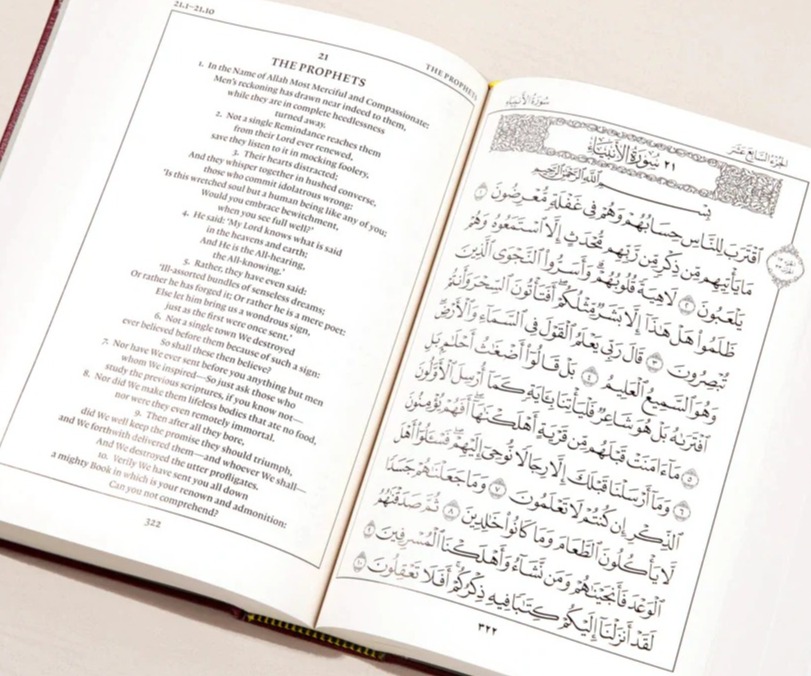 21.1–21.10
THE PROPHETS
21
THE PROPHETS
1. In the Name of Allah Most Merciful and Compassionate:
Men's reckoning has drawn near indeed to them,
while they are in complete heedlessness
turned away.
2. Not a single Remindance reaches them
from their Lord ever renewed,
save they listen to it in mocking foolery,
3. Their hearts distracted;
And they whisper together in hushed converse,
those who commit idolatrous wrong:
'Is this wretched soul but a human being like any of you;
Would you embrace bewitchment,
when you see full well?'
4. He said: 'My Lord knows what is said
in the heavens and earth;
And He is the All-hearing,
the All-knowing.'
5. Rather, they have even said:
'Ill-assorted bundles of senseless dreams;
Or rather he has forged it; Or rather he is a mere poet:
Else let him bring us a wondrous sign,
just as the first were once sent.'
6. Not a single town We destroyed
ever believed before them because of such a sign:
So shall these then believe?
7. Nor have We ever sent before you anything but men
whom We inspired—So just ask those who
study the previous scriptures, if you know not—
8. Nor did We make them lifeless bodies that ate no food,
nor were they even remotely immortal.
9. Then after all they bore,
did We well keep the promise they should triumph,
and We forthwith delivered them—and whoever We shall—
And We destroyed the utter profligates.
10. Verily We have sent you all down
a mighty Book in which is your renown and admonition:
Can you not comprehend?
322
سُورَةُ الأَنْبِيَاءِ
الجُزْءُ السَّابِعَ عَشَرَ
٢١ سُورَةُ الأَنْبِيَاءِ
بِسْمِ ٱللَّهِ ٱلرَّحْمَٰنِ ٱلرَّحِيمِ
ٱقْتَرَبَ لِلنَّاسِ حِسَابُهُمْ وَهُمْ فِى غَفْلَةٍ مُّعْرِضُونَ ١
مَا يَأْتِيهِم مِّن ذِكْرٍ مِّن رَّبِّهِم مُّحْدَثٍ إِلَّا ٱسْتَمَعُوهُ وَهُمْ
يَلْعَبُونَ ٢ لَاهِيَةً قُلُوبُهُمْ وَأَسَرُّوا۟ ٱلنَّجْوَى ٱلَّذِينَ
ظَلَمُوا۟ هَلْ هَٰذَآ إِلَّا بَشَرٌ مِّثْلُكُمْ أَفَتَأْتُونَ ٱلسِّحْرَ وَأَنتُمْ
تُبْصِرُونَ ٣ قَالَ رَبِّى يَعْلَمُ ٱلْقَوْلَ فِى ٱلسَّمَآءِ وَٱلْأَرْضِ
وَهُوَ ٱلسَّمِيعُ ٱلْعَلِيمُ ٤ بَلْ قَالُوٓا۟ أَضْغَٰثُ أَحْلَٰمٍ بَلِ
ٱفْتَرَىٰهُ بَلْ هُوَ شَاعِرٌ فَلْيَأْتِنَا بِـَٔايَةٍ كَمَآ أُرْسِلَ ٱلْأَوَّلُونَ
٥ مَآ ءَامَنَتْ قَبْلَهُم مِّن قَرْيَةٍ أَهْلَكْنَٰهَآ أَفَهُمْ يُؤْمِنُونَ
٦ وَمَآ أَرْسَلْنَا قَبْلَكَ إِلَّا رِجَالًا نُّوحِىٓ إِلَيْهِمْ فَسْـَٔلُوٓا۟ أَهْلَ
ٱلذِّكْرِ إِن كُنتُمْ لَا تَعْلَمُونَ ٧ وَمَا جَعَلْنَٰهُمْ جَسَدًا
لَّا يَأْكُلُونَ ٱلطَّعَامَ وَمَا كَانُوا۟ خَٰلِدِينَ ٨ ثُمَّ صَدَقْنَٰهُمُ
ٱلْوَعْدَ فَأَنجَيْنَٰهُمْ وَمَن نَّشَآءُ وَأَهْلَكْنَا ٱلْمُسْرِفِينَ ٩
لَقَدْ أَنزَلْنَآ إِلَيْكُمْ كِتَٰبًا فِيهِ ذِكْرُكُمْ أَفَلَا تَعْقِلُونَ ١٠
٣٢٢